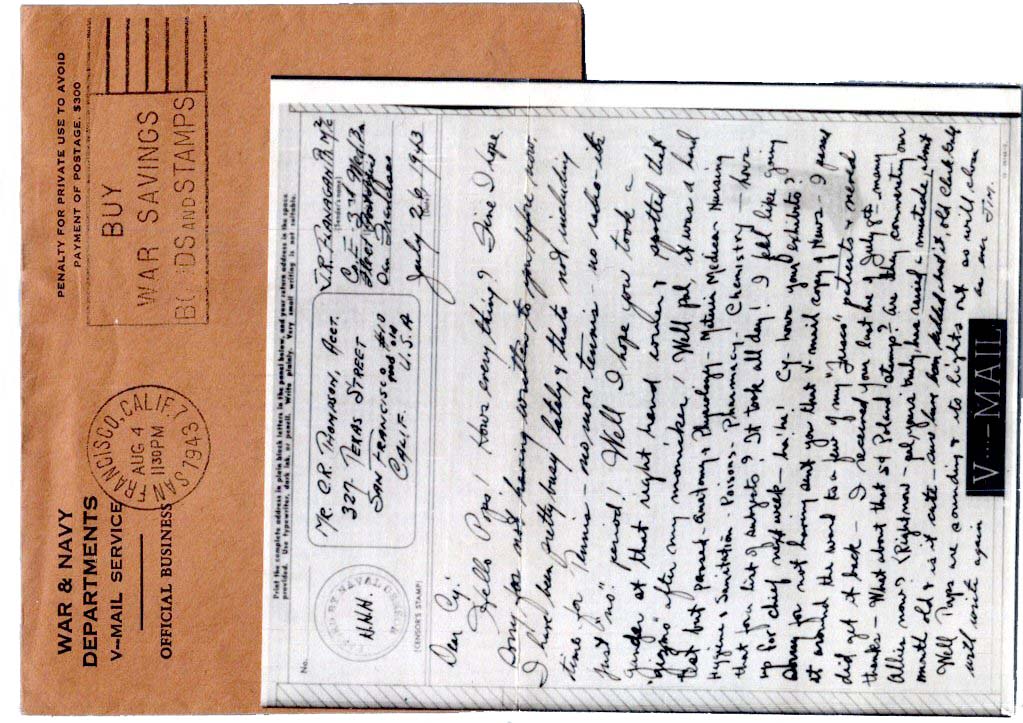 WAR & NAVY
DEPARTMENTS
V-MAIL SERVICE
OFFICIAL BUSINESS
SAN FRANCISCO, CALIF. 7
AUG 4
11 30 PM
1943
PENALTY FOR PRIVATE USE TO AVOID
PAYMENT OF POSTAGE. $300
BUY
WAR SAVINGS
BONDS AND STAMPS
Print the complete address in plain block letters in the panel below, and your return address in the space
provided. Use typewriter, dark ink, or pencil. Write plainly. Very small writing is not suitable.
No.
PASSED BY NAVAL CENSOR
(CENSOR'S STAMP)
MR C.R. THOMSON, AGT.
327 TEXAS STREET
SAN FRANCISCO #10
CALIF. U.S.A
J.R. FLANAGAN
(Sender's name)
July 26 1943
(Date)
Dear Cy:
Hello Pops! Hows every thing? Fine I hope
Sorry for not having written to you before now.
I have been pretty busy lately & thats not including
time for Tennis - no more tennis - no radio-ite
just "no" period! Well I hope you took a
gander at that right hand corner & spotted that
after my monicker! Well pal, it was a hard
test but passed - Anatomy & Physiology - Materia Medica - Nursing
Hygiene & Sanitation - Poisons - Pharmacy - Chemistry - hows
that for a list of subjects? It took all day! I feel like going
up for chief next week - ha! ha! Cy hows your exhibits?
Sorry for not having sent you that V-mail copy of News - I passed
it around the ward to a few of my patients & never
did get it back - I received your last he of July 8th - many
thanks - What about that 5¢ Poland stamp? are they converting our
Allies now? (Right now - pal, yours truly has raised a mustache, about
month old & is it cute - and
Well Pops we are sounding & to lights out so will close
will write again as ever Jim.
V···—MAIL